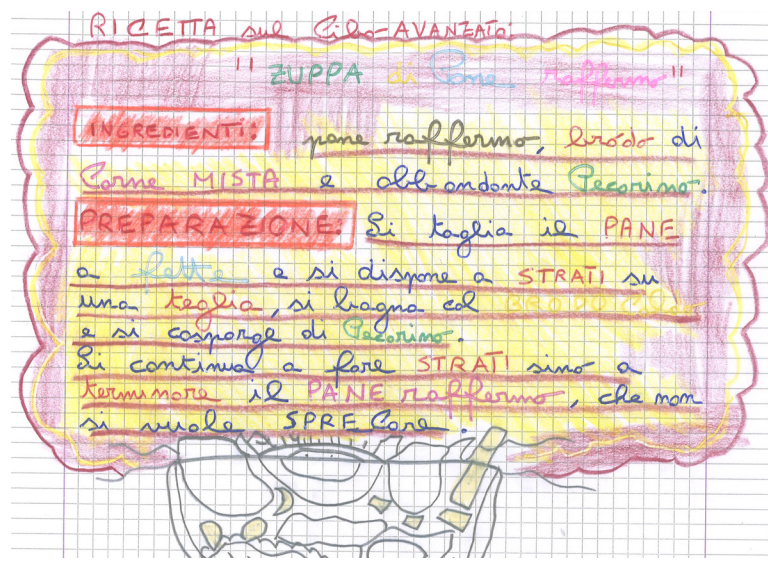 RICETTA sul Cibo-AVANZATO:
"ZUPPA di Pane raffermo"
INGREDIENTI: pane raffermo, brodo di
Carne MISTA e abbondante Pecorino.
PREPARAZIONE: Si taglia il PANE
a fette e si dispone a STRATI su
una teglia, si bagna col BRODO
e si cosparge di Pecorino.
Si continua a fare STRATI sino a
terminare il PANE raffermo, che non
si vuole SPRECare.